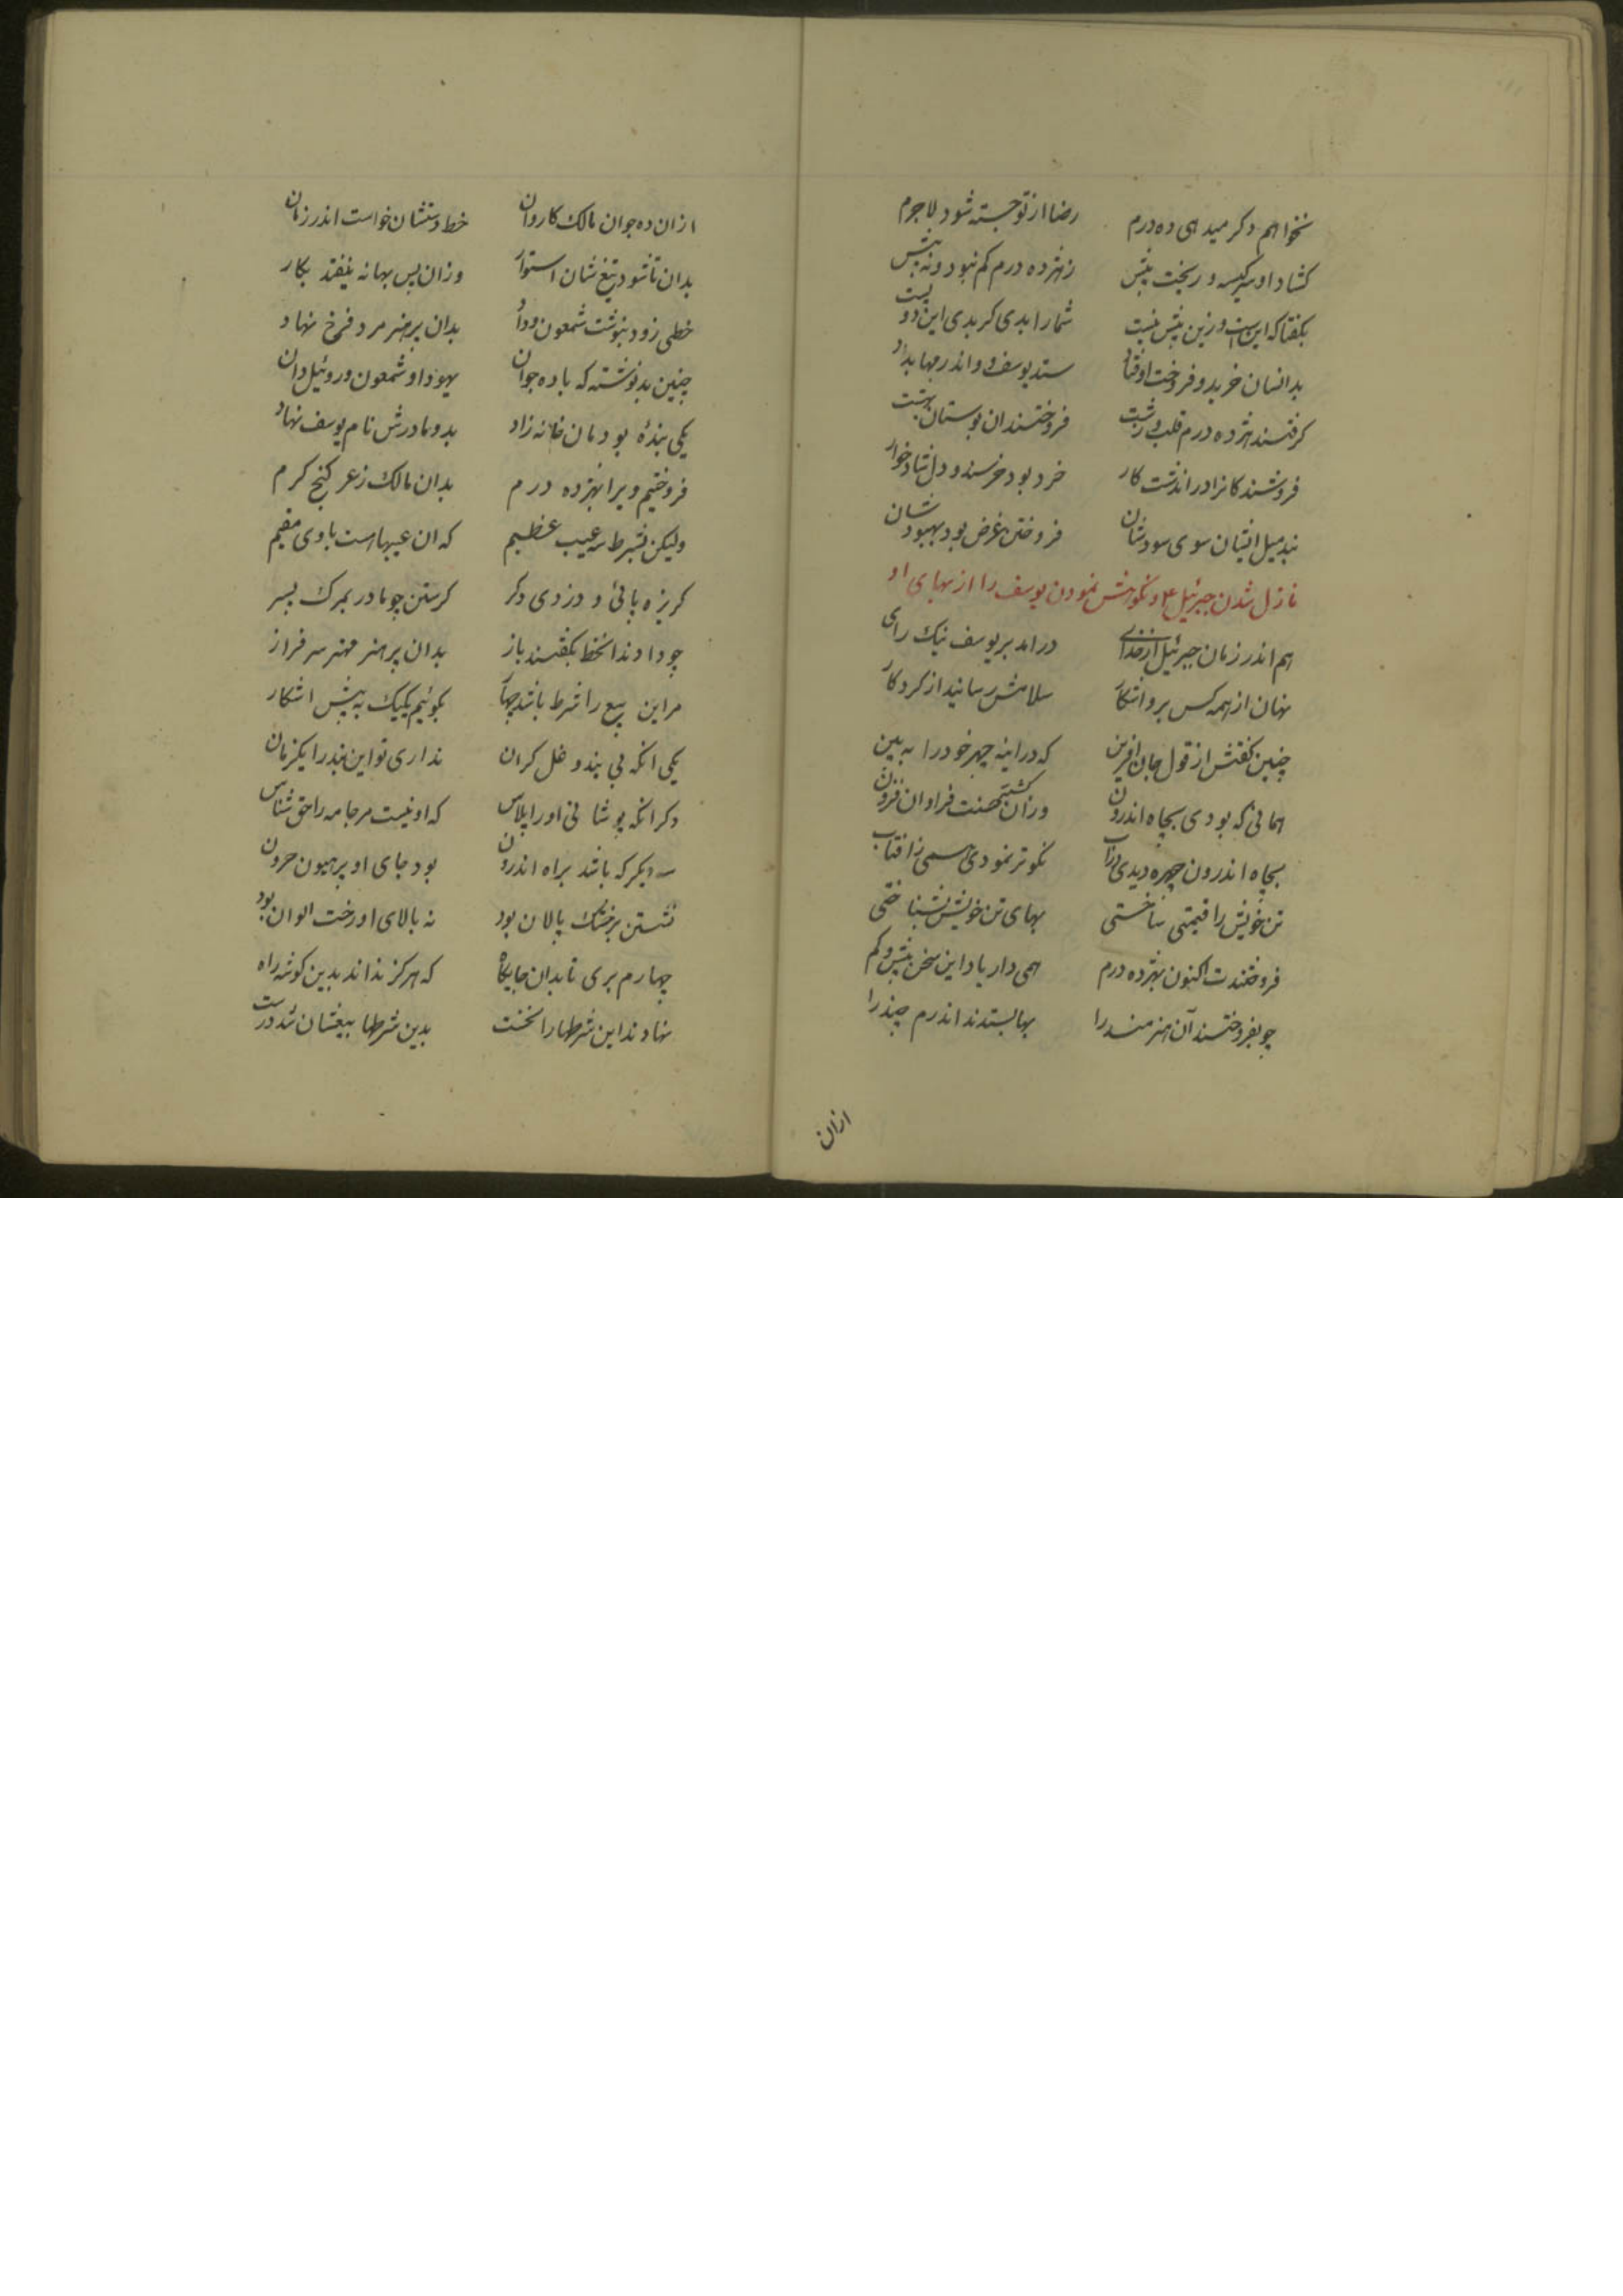 نخواهم دکر میدهی ده درم رضا از تو جسته شود لاجرم
کشاد او سر کیسه و ریخت پیش ز هژده درم کم نبود و نه بیش
بکفتا که این است و زین پیش نیست شما را بدی کر بدی این دویست
بدانسان خرید و فروخت اوفتاد ستد یوسف و اندر بها بداد
کرفتند هژده درم قلب زشت فروختند ان بوستان بهشت
فروشند کانرا در اندشت کار خرد بود خرسند و دل شادخوار
نبد میل ایشان سوی سودشان فروختن غرض بود بهبودشان
نازل شدن جبرئیل ع و نکوهش نمودن یوسف را از بهای او
هم اندر زمان جبرئیل از خدای درامد بر یوسف نیک رای
نهان از همه کس برو اشکار سلامش رسانید از کردکار
چنین کفتش از قول جان افرین که در اینه چهر خود را به بین
همانی که بودی بچاه اندرون وزان کشته حسنت فراوان فزون
بچاه اندرون چهره دیدی در اب نکوتر نمودی همی ز افتاب
تن خویش را قیمتی ساختی بهای تن خویش نشناختی
فروختندت اکنون بهژده درم همی دار یاد این سخن بیش و کم
چو بفروختند آن هنرمند را بها بستدند اندرم چند را
ازان
ازان ده جوان مالک کاروان خط دستشان خواست اندر زمان
بدان تا شود بیع شان استوار وزان پس بهانه نیفتد بکار
خطی زود بنوشت شمعون و داد بدان پرهنر مرد فرخ نهاد
چنین بد نوشته که با ده جوان یهودا و شمعون و روئیل دان
یکی بندهٔ بودمان خانه زاد بدو مادرش نام یوسف نهاد
فروختیم ویرا بهژده درم بدان مالک زعر کنج کرم
ولیکن بشرط سه عیب عظیم که ان عیبهاست با وی مقیم
کریزه پائی و دزدی دکر کرستن چو مادر بمرک پسر
چو دادند انخط بکفتند باز بدان پرهنر مهتر سرفراز
مر این بیع را شرط باشد چهار بکوئیم یکیک به پیش اشکار
یکی انکه بی بند و غل کران نداری تو این بنده را یکزمان
دکر انکه پوشانی او را پلاس که او نیست مر جامه را حق شناس
سه دیکر که باشد براه اندرون بود جای او بر هیون حرون
نشستن بر خشک پالان بود نه بالای او رخت الوان بود
چهارم بری تا بدان جایکاه که هرکز نداند بدین کوشه راه
نهادند این شرطها را نخست بدین شرطها بیعشان شد درست